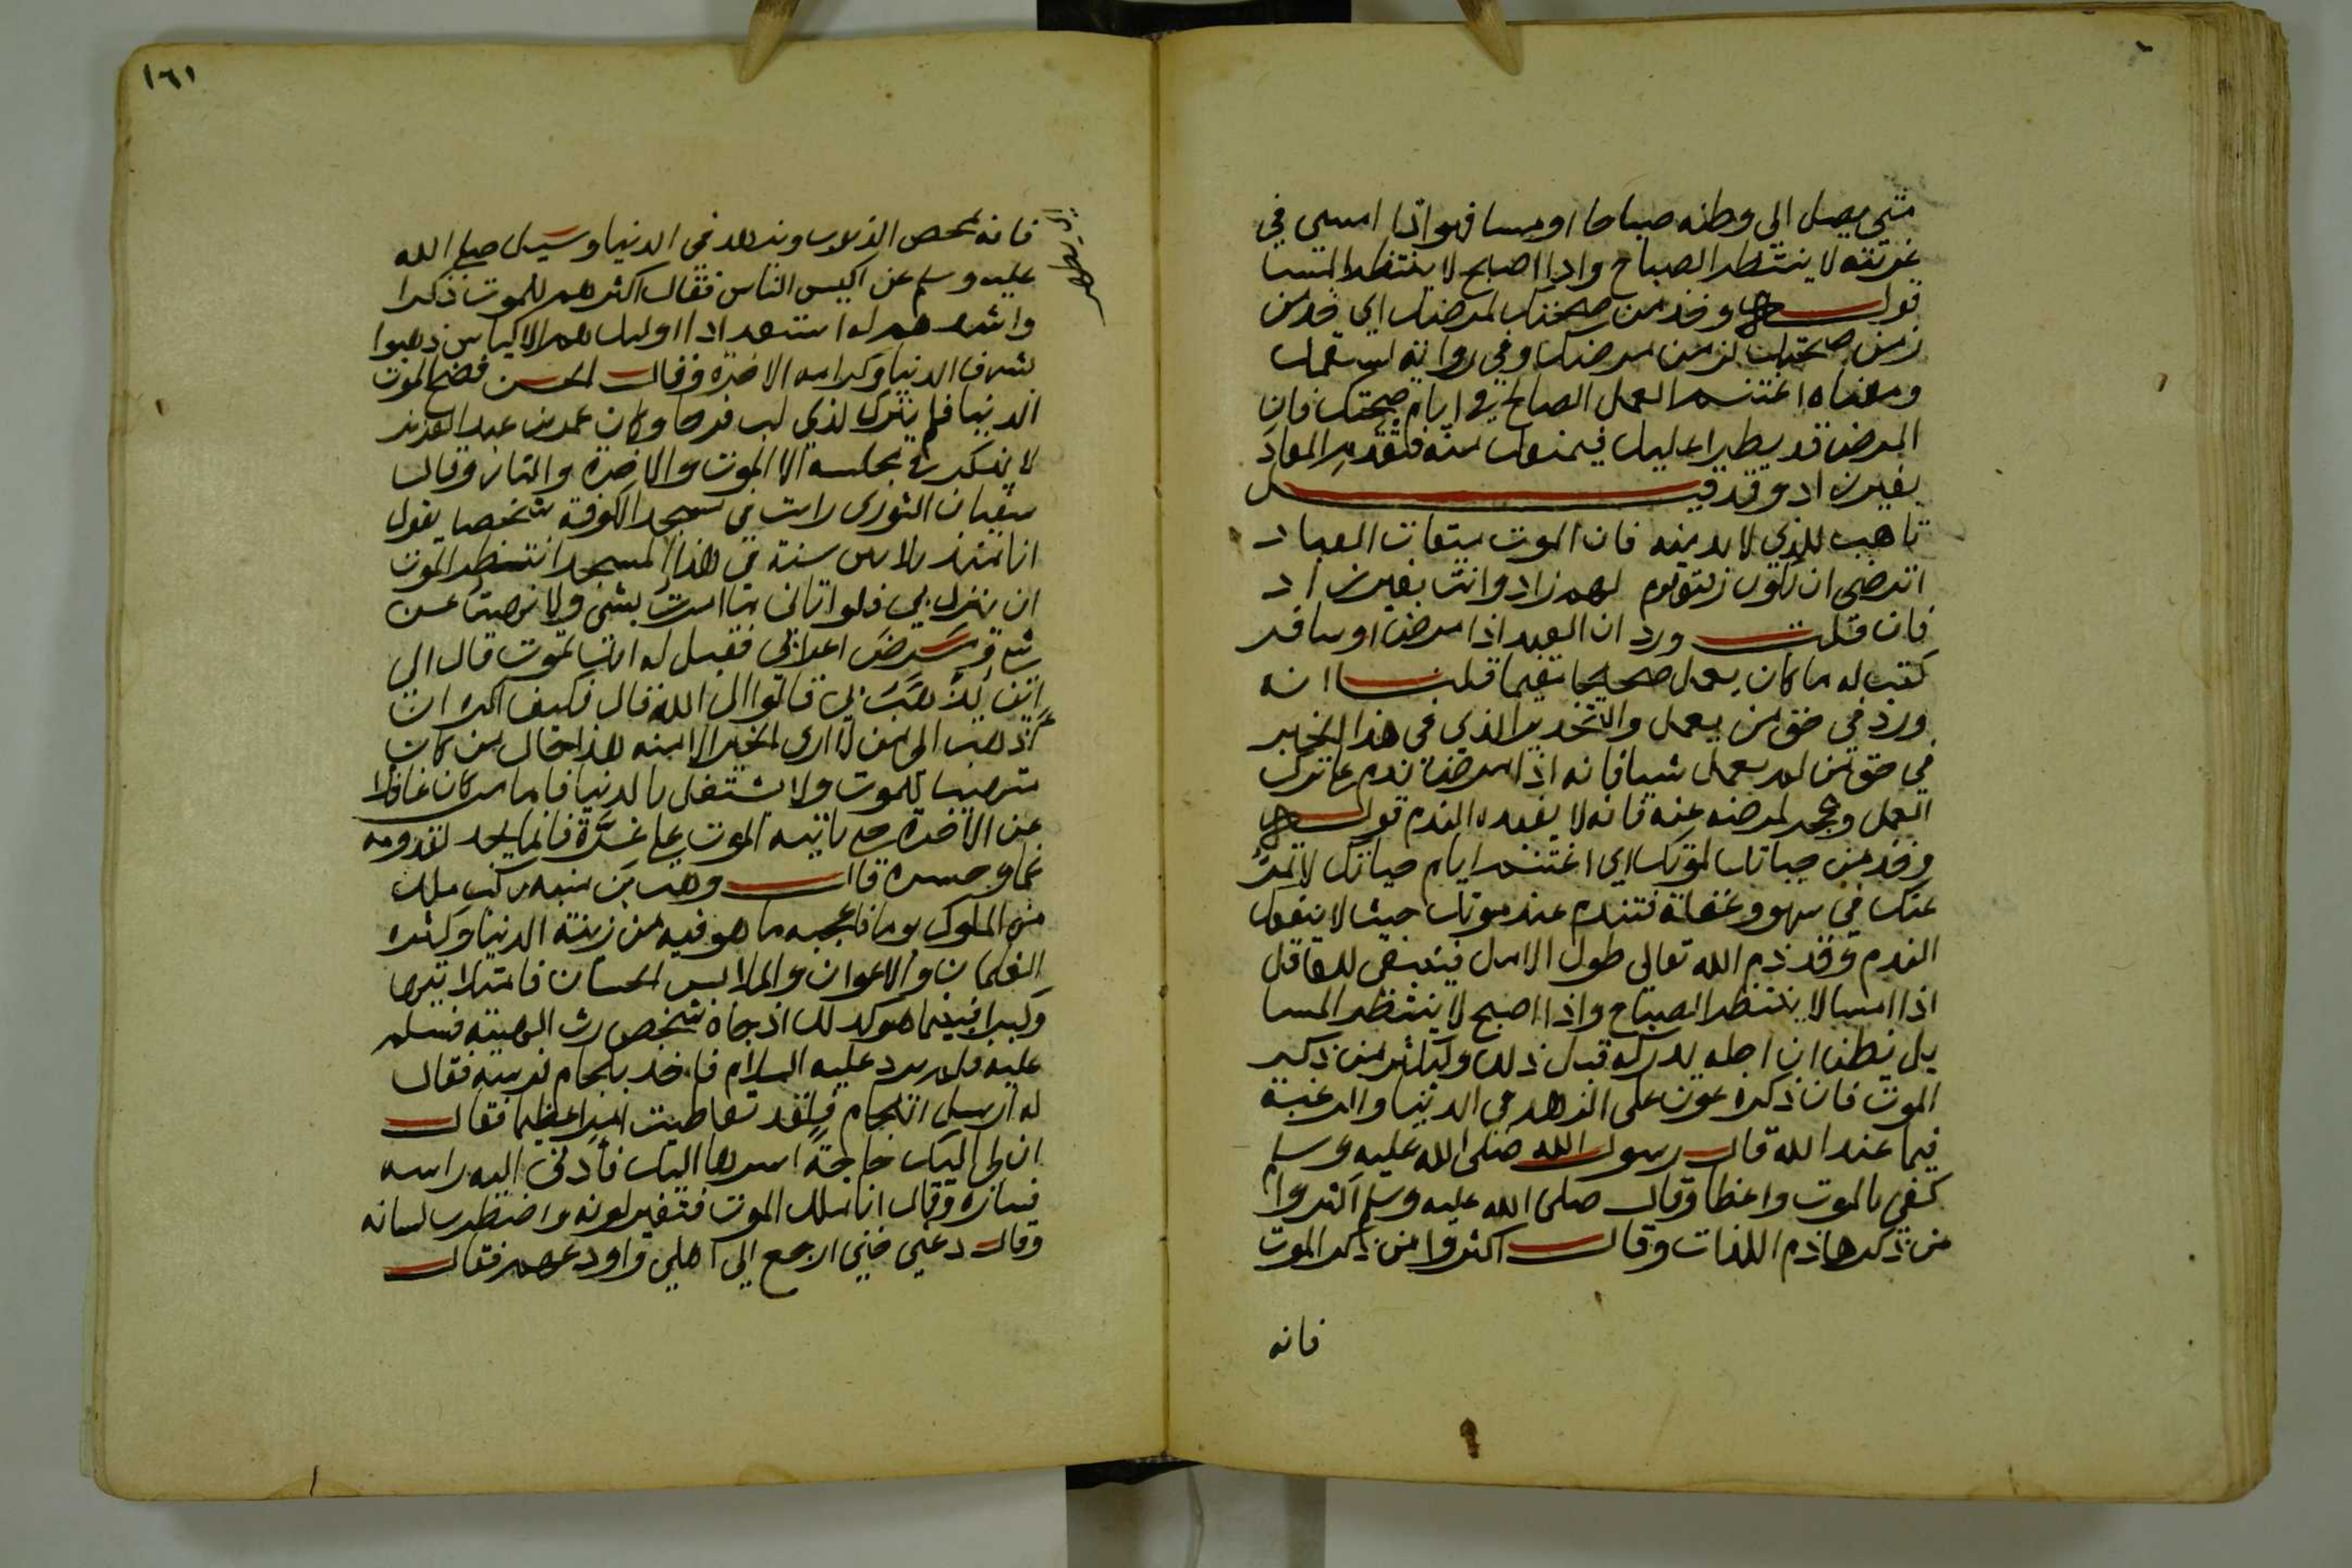 متي يصل الي وطنه صباحا او مسا فهو اذا امسي في
غربته لا ينتظر الصباح واذا اصبح لا ينتظر المسا
قوله وخذ من صحتك لمرضك اي خذ من
زمن صحتك لزمن مرضك وفي رواية لسقمك
ومعناه اغتنم العمل الصالح في ايام صحتك فان
المرض قد يطرا عليك فيمنعك منه فتقدم المعاد
بغير زاد وقد قيل
تاهب للذي لا بد منه فان الموت ميقات العباد
اترضي ان تكون رفيق قوم لهم زاد وانت بغير زاد
فان قلت ورد ان العبد اذا مرض او سافر
كتب له ما كان يعمل صحيحا مقيما قلنا انه
ورد في حق من يعمل والتحذير الذي في هذا الخبر
في حق من لم يعمل شيا فانه اذا مرض ندم علي ترك
العمل وعجز لمرضه عنه فانه لا يفيده الندم قوله
وخذ من حياتك لموتك اي اغتنم ايام حياتك لا تمر
عنك في سهو وغفلة فتندم عند موتك حيث لا ينفعك
الندم وقد ذم الله تعالي طول الامل فينبغي للعاقل
اذا امسا لا ينتظر الصباح واذا اصبح لا ينتظر المسا
بل يظن ان اجله يدركه قبل ذلك وليكثر من ذكر
الموت فان ذكره عون على الزهد في الدنيا والرغبة
فيما عند الله قال رسول الله صلى الله عليه وسلم
كفي بالموت واعظا وقال صلى الله عليه وسلم اكثروا
من ذكر هاذم اللذات وقال اكثروا من ذكر الموت
فانه
١٦١
فانه يمحص الذنوب ويزهد في الدنيا وسيل صلى الله
عليه وسلم عن اكيس الناس فقال اكثرهم للموت ذكرا
واشدهم له استعدادا اوليك هم الاكياس ذهبوا
بشرف الدنيا وكرامة الاخرة وقال الحسن فضح الموت
الدنيا فلم يترك لذي لب فرحا وكان عمر بن عبد العزيز
لا يذكر في مجلسه الا الموت والاخرة والنار وقال
سفيان الثوري رايت في مسجد الكوفة شخصا يقول
انا منذ ثلاثين سنة في هذا المسجد انتظر الموت
ان ينزل بي فلو اتاني ما امرت بشي ولا نهيت عن
شي ومرض اعرابي فقيل له انك تموت قال الى
اين يذهب بي قالوا الى الله قال فكيف اكره ان
اذهب الى من لا ارى الخير الا منه هذا حال من كان
مترقبا للموت ولا يشتغل بالدنيا فاما من كان غافلا
عن الاخرة حتى ياتيه الموت على غرة فانما يجد لقدومه
غما وحسرة قال وهب بن منبه ركب ملك
من الملوك يوما فاعجبه ما هو فيه من زينة الدنيا وكثرة
الغلمان والاعوان والملابس الحسان فامتلا تيها
وكبرا فبينما هو كذلك اذ جاه شخص رث الهيئة فسلم
عليه فلم يرد عليه السلام فاخذ بلجام فرسه فقال
له ارسل اللجام فلقد تعاطيت امرا عظيما فقال
ان لي اليك حاجة اسرها اليك فادنى اليه راسه
فساره وقال انا ملك الموت فتغير لونه واضطرب لسانه
وقال دعني حتي ارجع الي اهلي واودعهم فقال